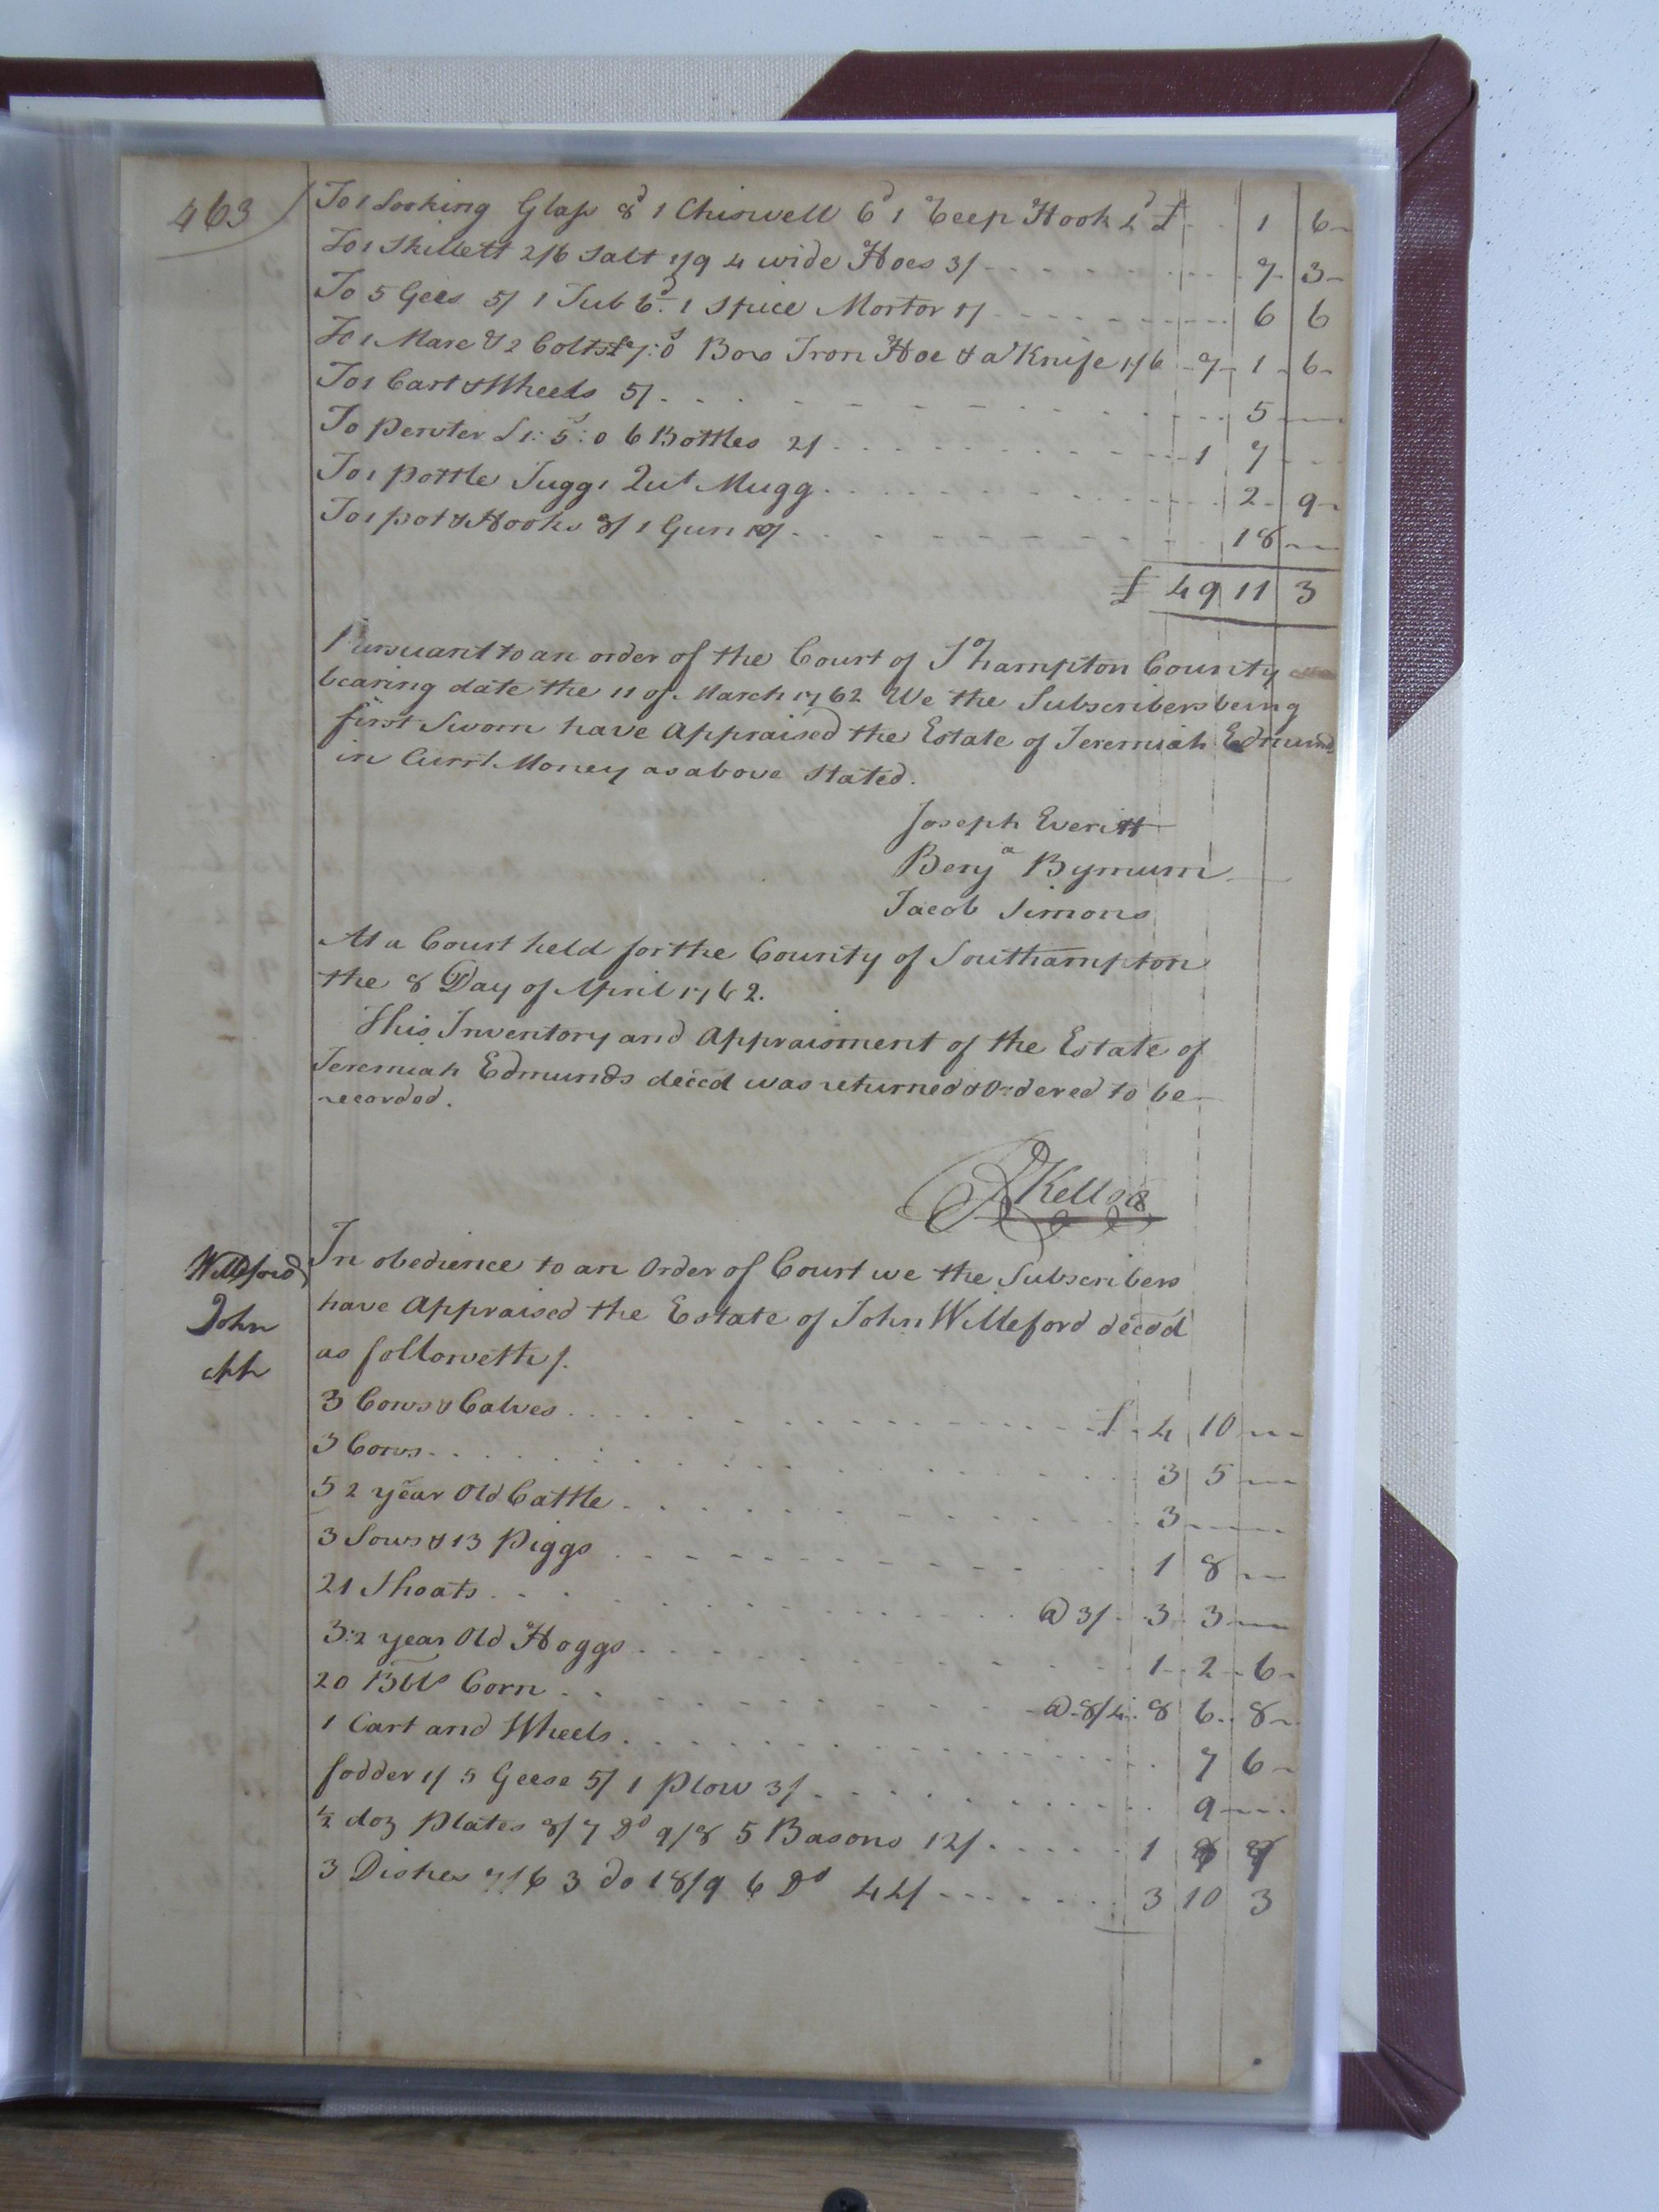 463
To 1 Looking Glass 8d 1 Chiswell 6d 1 Reep Hook 4d £ 1 6
To 1 Skillett 2/6 Salt 1/9 4 wide Hoes 3/ 7 3
To 5 Gees 5/ 1 Tub 6d. 1 Spice Mortor 1/ 6 6
To 1 Mare & 2 Colts £7:0s Box Iron Hoe & a Knife 1/6 7 1 6
To 1 Cart & Wheels 5/ 5
To Pewter £1:5s:0 6 Bottles 2/ 1 7
To 1 Pottle Jugg 1 Qut Mugg 2 9
To 1 pot & Hooks 8/ 1 Gun 10/ 18
£ 49 11 3
Pursuant to an order of the Court of So hampton County
bearing date the 11 of March 1762 We the Subscribers being
first Sworn have Appraised the Estate of Jeremiah Edmund
in Currt Money as above Stated.
Joseph Everitt
Benja Bynum
Jacob Simons
At a Court held for the County of Southampton
the 8 Day of April 1762.
This Inventory and Appraisment of the Estate of
Jeremiah Edmunds deced was returned & Ordered to be
recorded.
R Kello
Willeford
John
In obedience to an Order of Court we the Subscribers
have Appraised the Estate of John Willeford decd
as followeth/.
3 Cows & Calves £ 4 10
3 Cows 3 5
5 2 year Old Cattle 3
3 Sows & 13 Piggs 1 8
21 Shoats @ 3/ 3 3
3:2 year Old Hoggs 1 2 6
20 Bbls Corn @ 8/4 8 6 8
1 Cart and Wheels 7 6
fodder 1/ 5 Geese 5/ 1 Plow 3/ 9
½ doz Plates 8/ 7 Do 9/8 5 Basons 12/ 1
3 Dishes 7/6 3 do 18/9 6 Do 44/ 3 10 3